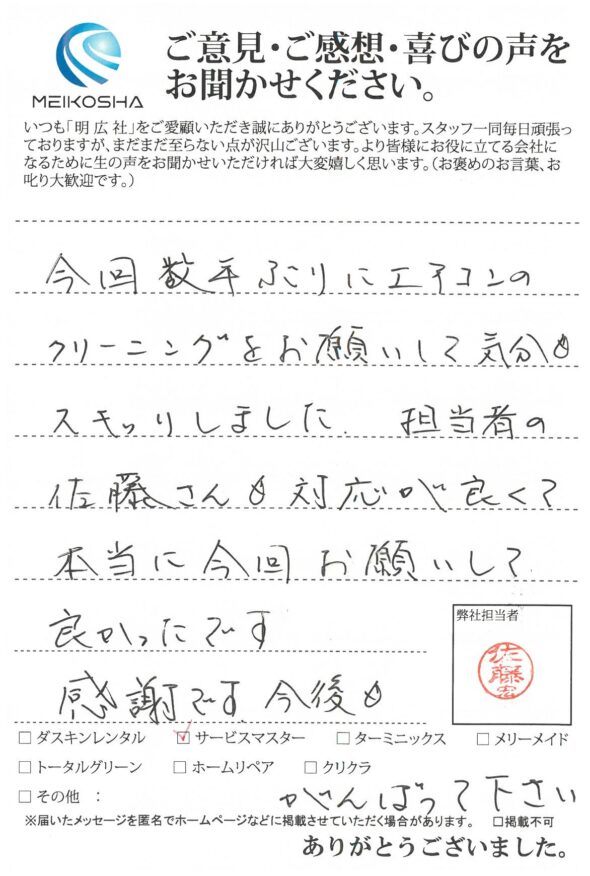 MEIKOSHA
ご意見・ご感想・喜びの声を
お聞かせください。
いつも「明広社」をご愛顧いただき誠にありがとうございます。スタッフ一同毎日頑張っ
ておりますが、まだまだ至らない点が沢山ございます。より皆様にお役に立てる会社に
なるために生の声をお聞かせいただければ大変嬉しく思います。（お褒めのお言葉、お
叱り大歓迎です。）
今回数年ぶりにエアコンの
クリーニングをお願いして気分も
スキッリしました. 担当者の
佐藤さんも対応が良くて
本当に今回お願いして
良かったです
感謝です. 今後も
がんばって下さい
弊社担当者
佐藤
□ ダスキンレンタル ☑ サービスマスター □ ターミニックス □ メリーメイド
□ トータルグリーン □ ホームリペア □ クリクラ
□ その他 ：
※届いたメッセージを匿名でホームページなどに掲載させていただく場合があります。 □掲載不可
ありがとうございました。